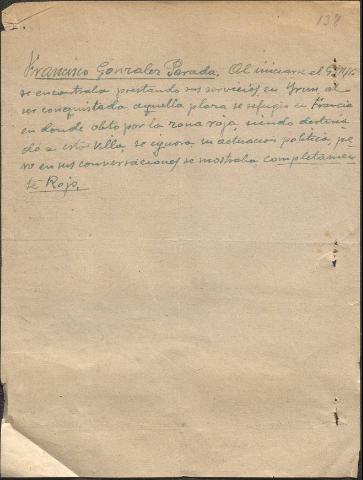 138
Francisco Gonzalez Parada. Al iniciarse el
se encontraba prestando sus servicios en Irun al
ser conquistada aquella plaza se refugio en Francia
en donde obto por la zona roja, siendo destina
do a esta Villa, se ignora su actuacion politica, pe
ro en sus conversaciones se mostraba completamen
te Rojo.